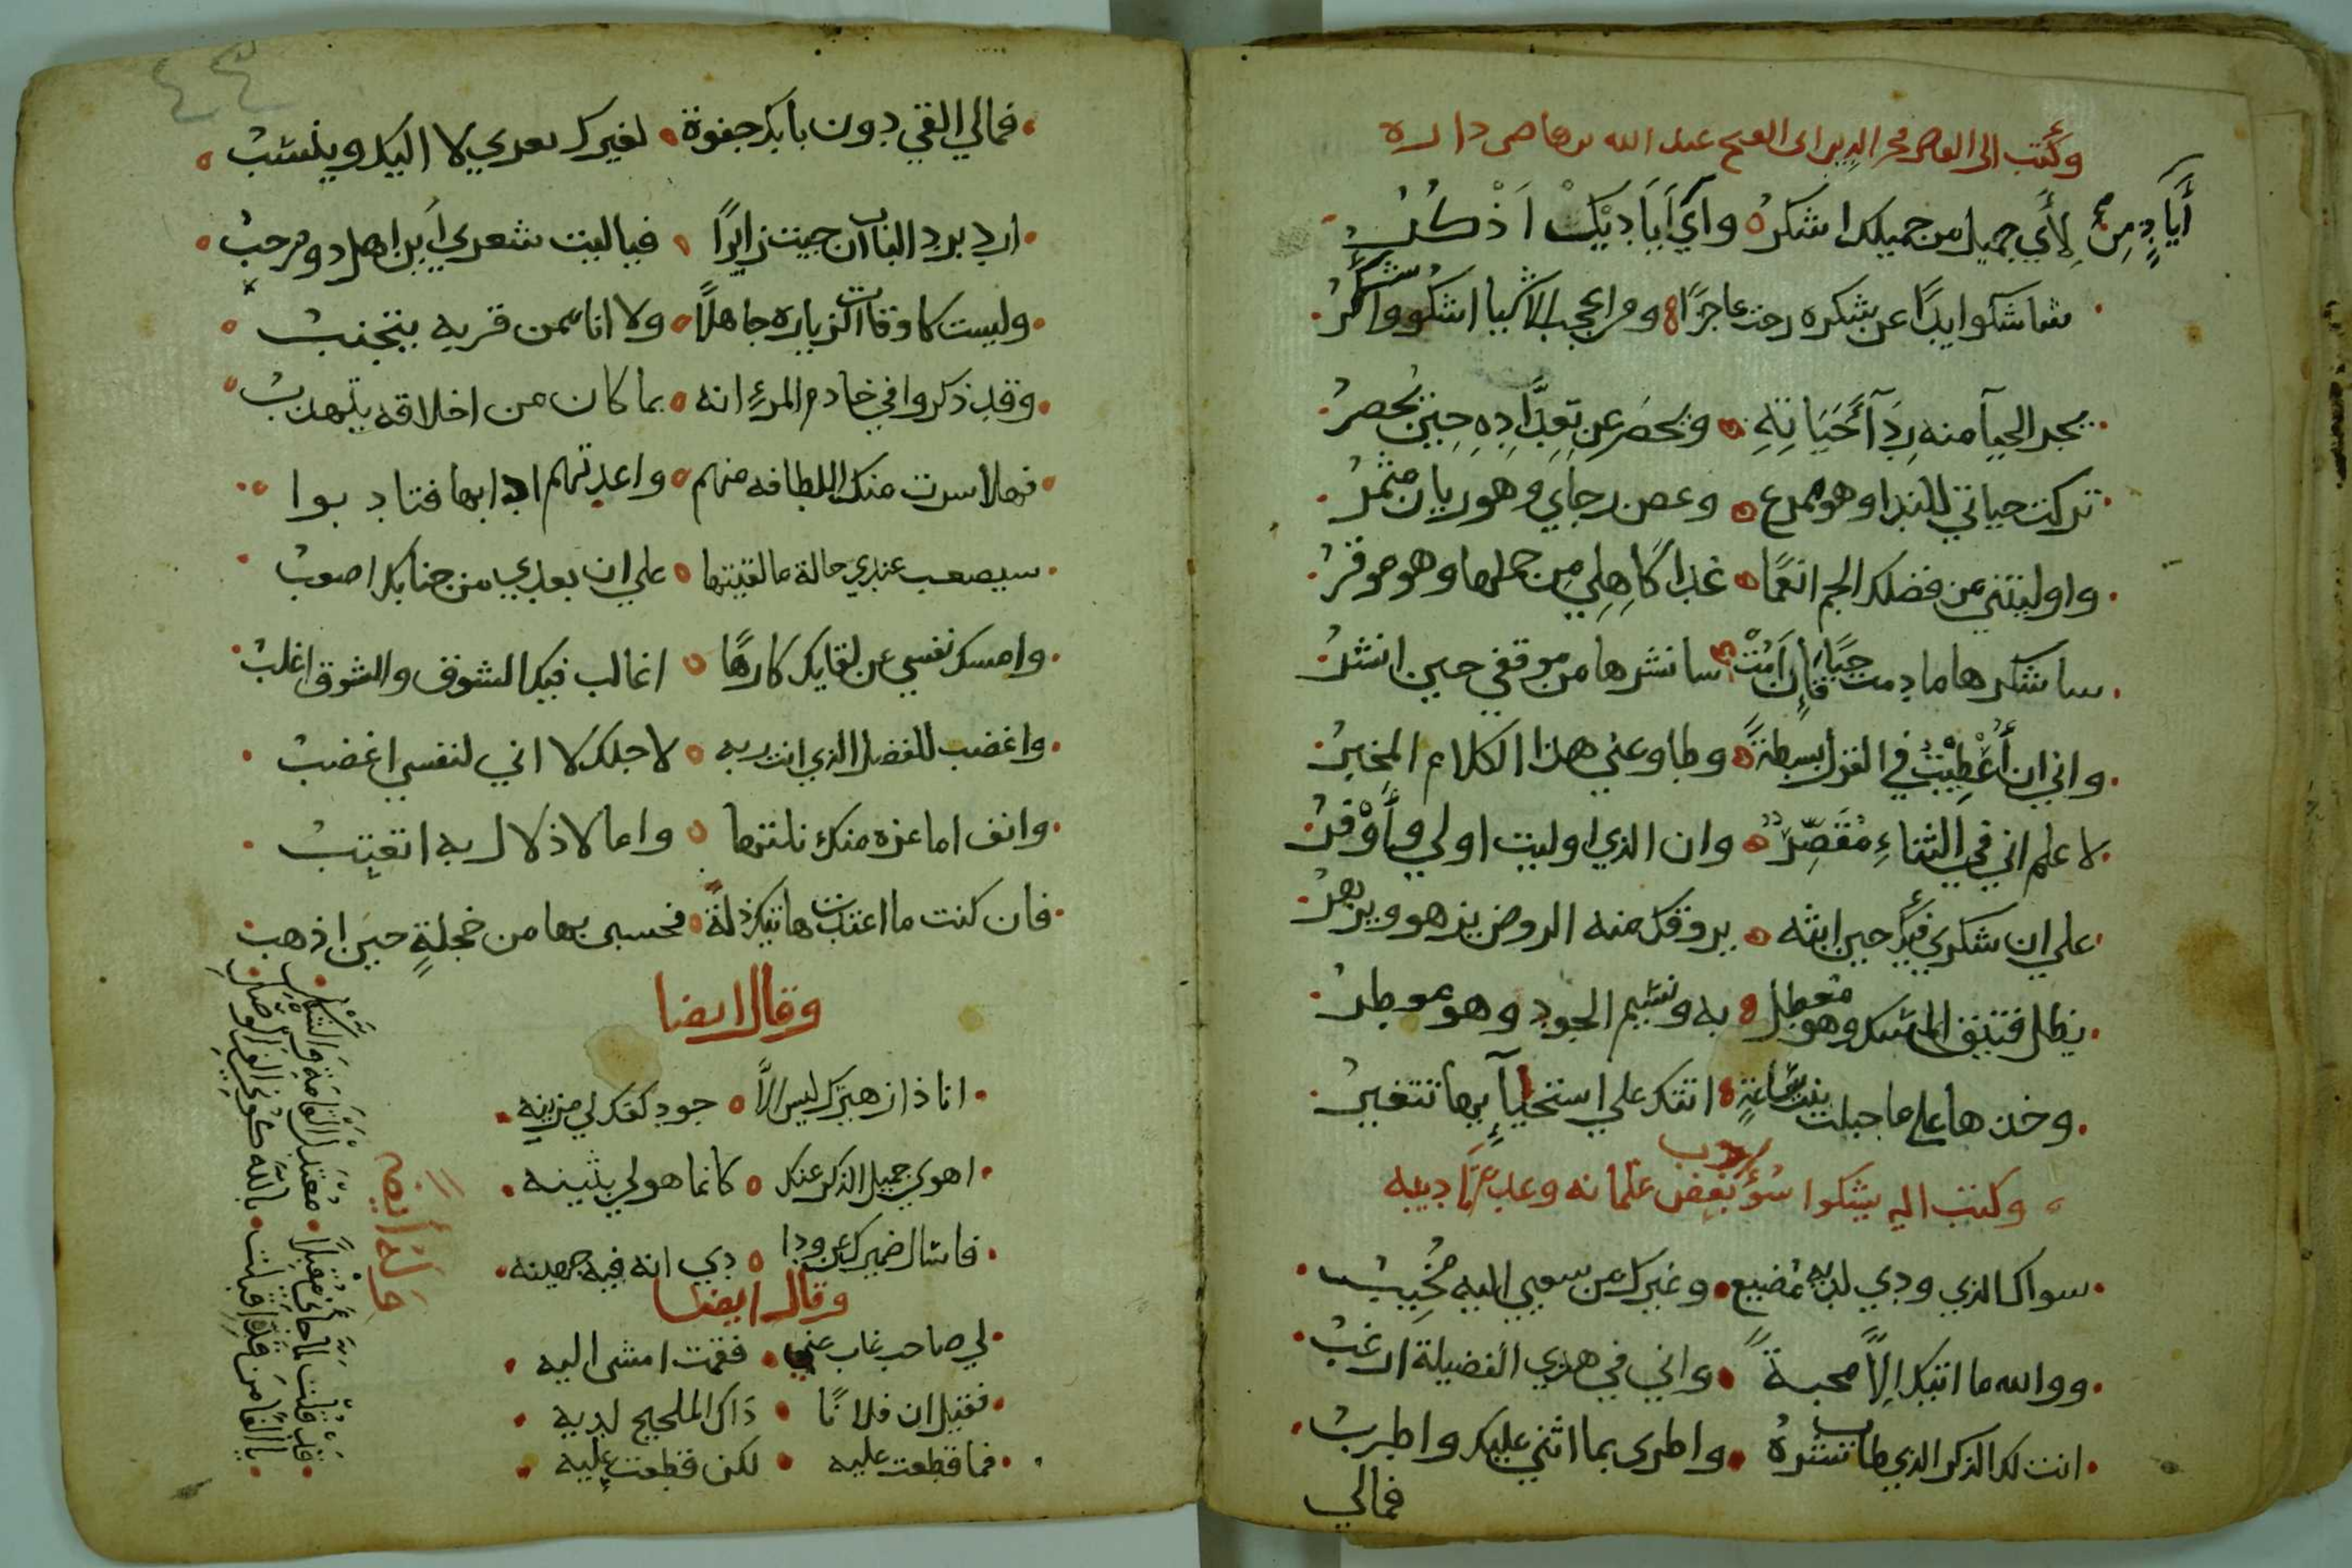 وكتب الى القاضي فخر الدين ابى الفتح عبد الله بن قاضي داره
أيادٍ من لأي جميل من جميلك اشكره وآي أياديك اذكر
شاشكوا يدًا عن شكره رحت عاجزًا ومن اعجب الاشيا اشكو واشكر
يجد الحيآ منه رِدَآ حَيَاتِهِ ويحصر عن تعدَادِهِ حين يحصر
تركت حياتي للندا وهو ممرع وغصن رجاي وهو ريان مثمر
واوليتني من فضلك الجم انعمًا غدا كاهلي من حملها وهو موقر
ساشكرها ما دمت حيًا فإن أمُتْ سانشرها من موقفي حين انشر
واني ان أُعْطِيْتُ في القول بسطةً وطاوعني هذا الكلام المخبر
لا علم اني في الثناءِ مُقَصِّرٌ وان الذي اوليت اولي وأَوْفر
علي ان شكري فيك حين ابثه يروقك منه الروض يزهو ويزهر
يظل فتيق المسك وهو معطل به ونسيم الجود وهو معطر
وخذها علي ما خيلت بنت ساعة اتتك علي استحيآءٍ بها تتغير
وكتب اليه يشكوا سوء ادب بعض غلمانه وعدم تاديبه
سواك الذي ودي لديه مضيع وغيرك من سعيي اليه مُخيب
ووالله ما اتيك إلاً محبةً واني في هذي الفضيلة ارغب
ابث لك الذكر الذي طاب نشره واطرى بما اثني عليك واطرب
فمالي
٤٣
فمالي القي دون بابك جفوة لغيرك تعزي لا اليك وينسب
ارد برد الباب ان جيت زايرًا فيا ليت شعري أين اهل ومرحب
وليست كاوقات الزياره جاهلًا ولا انا ممن قربه يتجنب
وقد ذكروا في خادم المرءِ انه بما كان من اخلاقه يتهذب
فهلا سرت منك اللطافه منهم واعدتهم ادابها فتادبوا
سيصعب عندي حالة ما لقيتها علي ان بعدي من جنابك اصعب
وامسك نفسي عن لقايك كارهًا اغالب فيك الشوق والشوق اغلب
واغضب للفضل الذي انت ربه لاجلك لا اني لنفسي اغضب
وانف اما عزه منك نلتها واما لاذلال به اتعتب
فان كنت ما اعتدت هاتيك زلةً فحسبي بها من خجلةٍ حين اذهب
وقال ايضا
انا ذا زهيرك ليس الاً جود كفك لي مزينه
اهوى جميل الذكر عنك كانما هو لي بثينه
فاسال ضميرك عن ودادي انه فيه جهينه
وقال ايضا
لي صاحب غاب عني فقمت امشى اليه
فقيل ان فلانًا ذاك المليح لديه
فما قطعت عليه لكن قطعت عليه
وله ايضا
قد قلت لما جائى مقبلًا معتدل القامة والشكل
يا الفًا من قده اقبلت بالله كوني الف الوصل